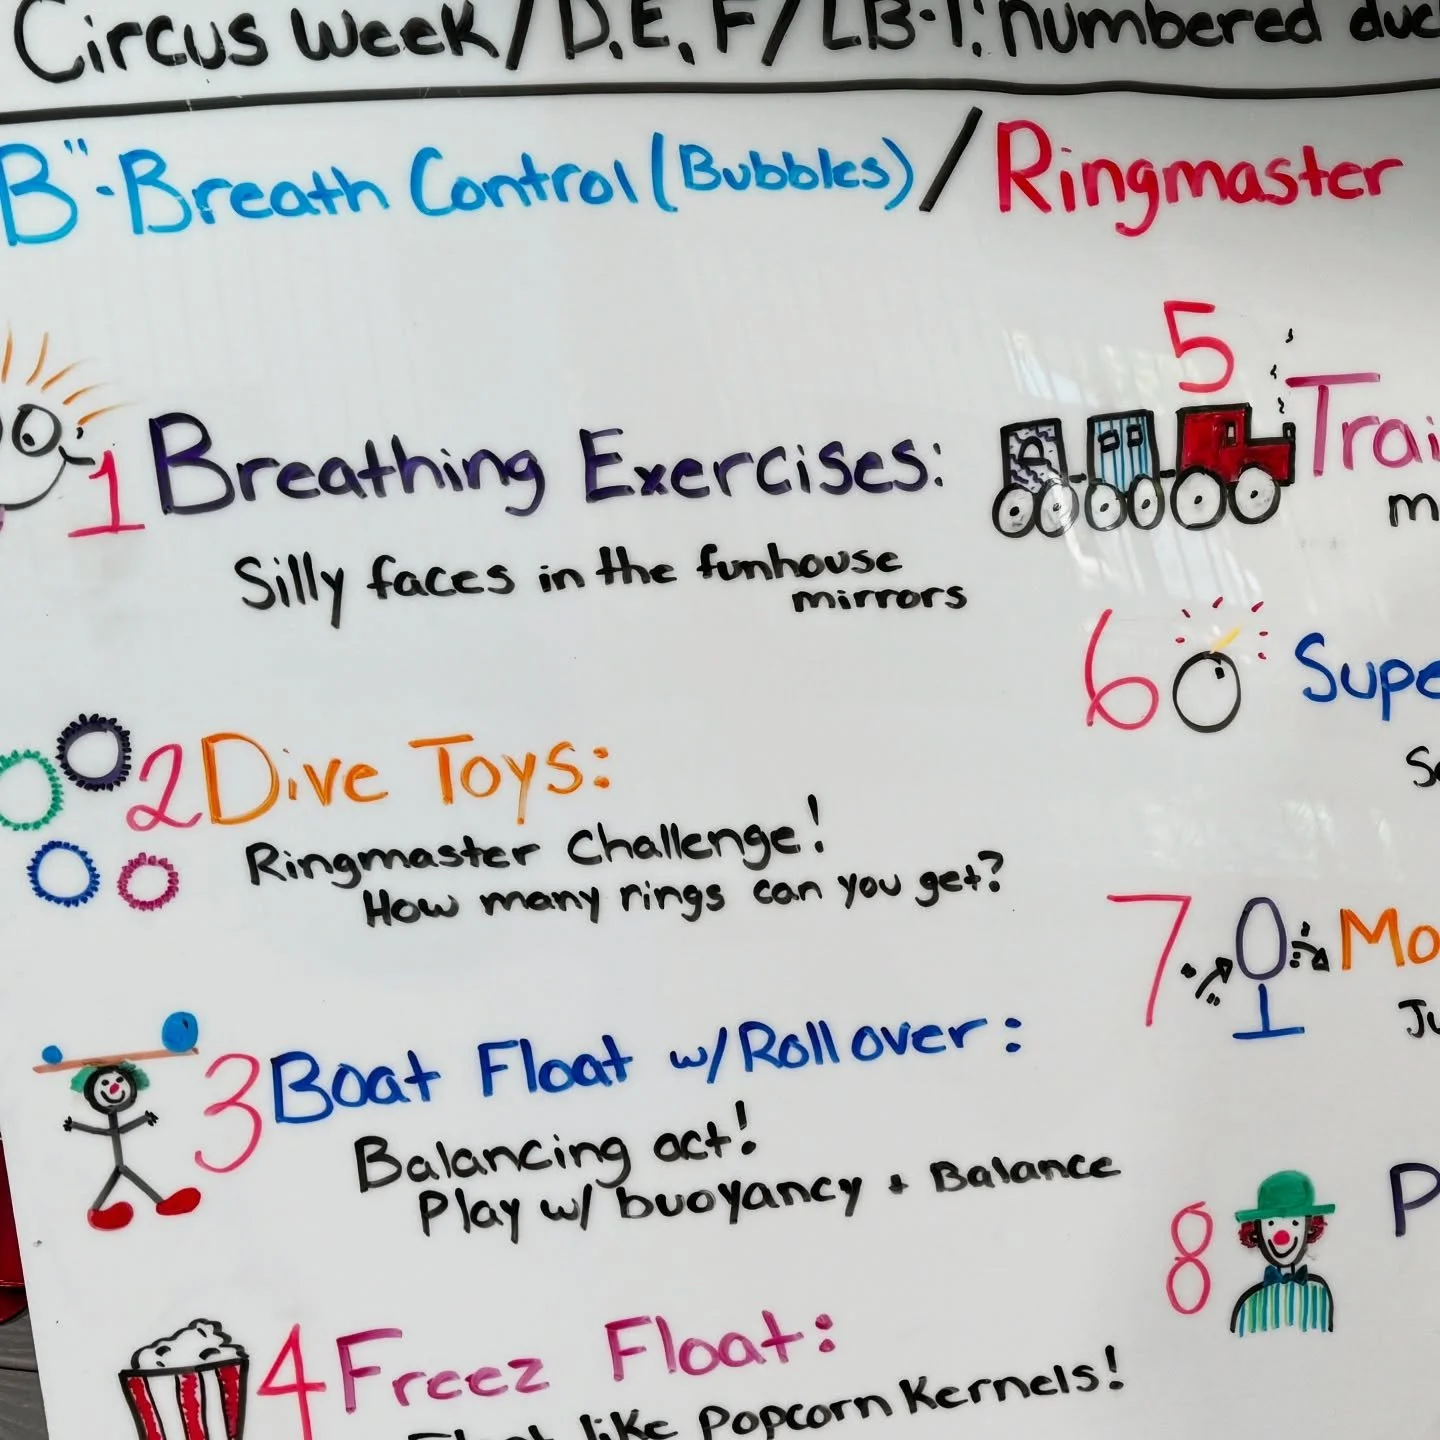 Circus Week / D, E, F / LB-1: numbered
B" - Breath Control (Bubbles) / Ringmaster
1 Breathing Exercises:
Silly faces in the funhouse
mirrors
2 Dive Toys:
Ringmaster Challenge!
How many rings can you get?
3 Boat Float w/ Rollover:
Balancing act!
Play w/ buoyancy + Balance
4 Freez Float:
like Popcorn Kernels!
5
6
7
8